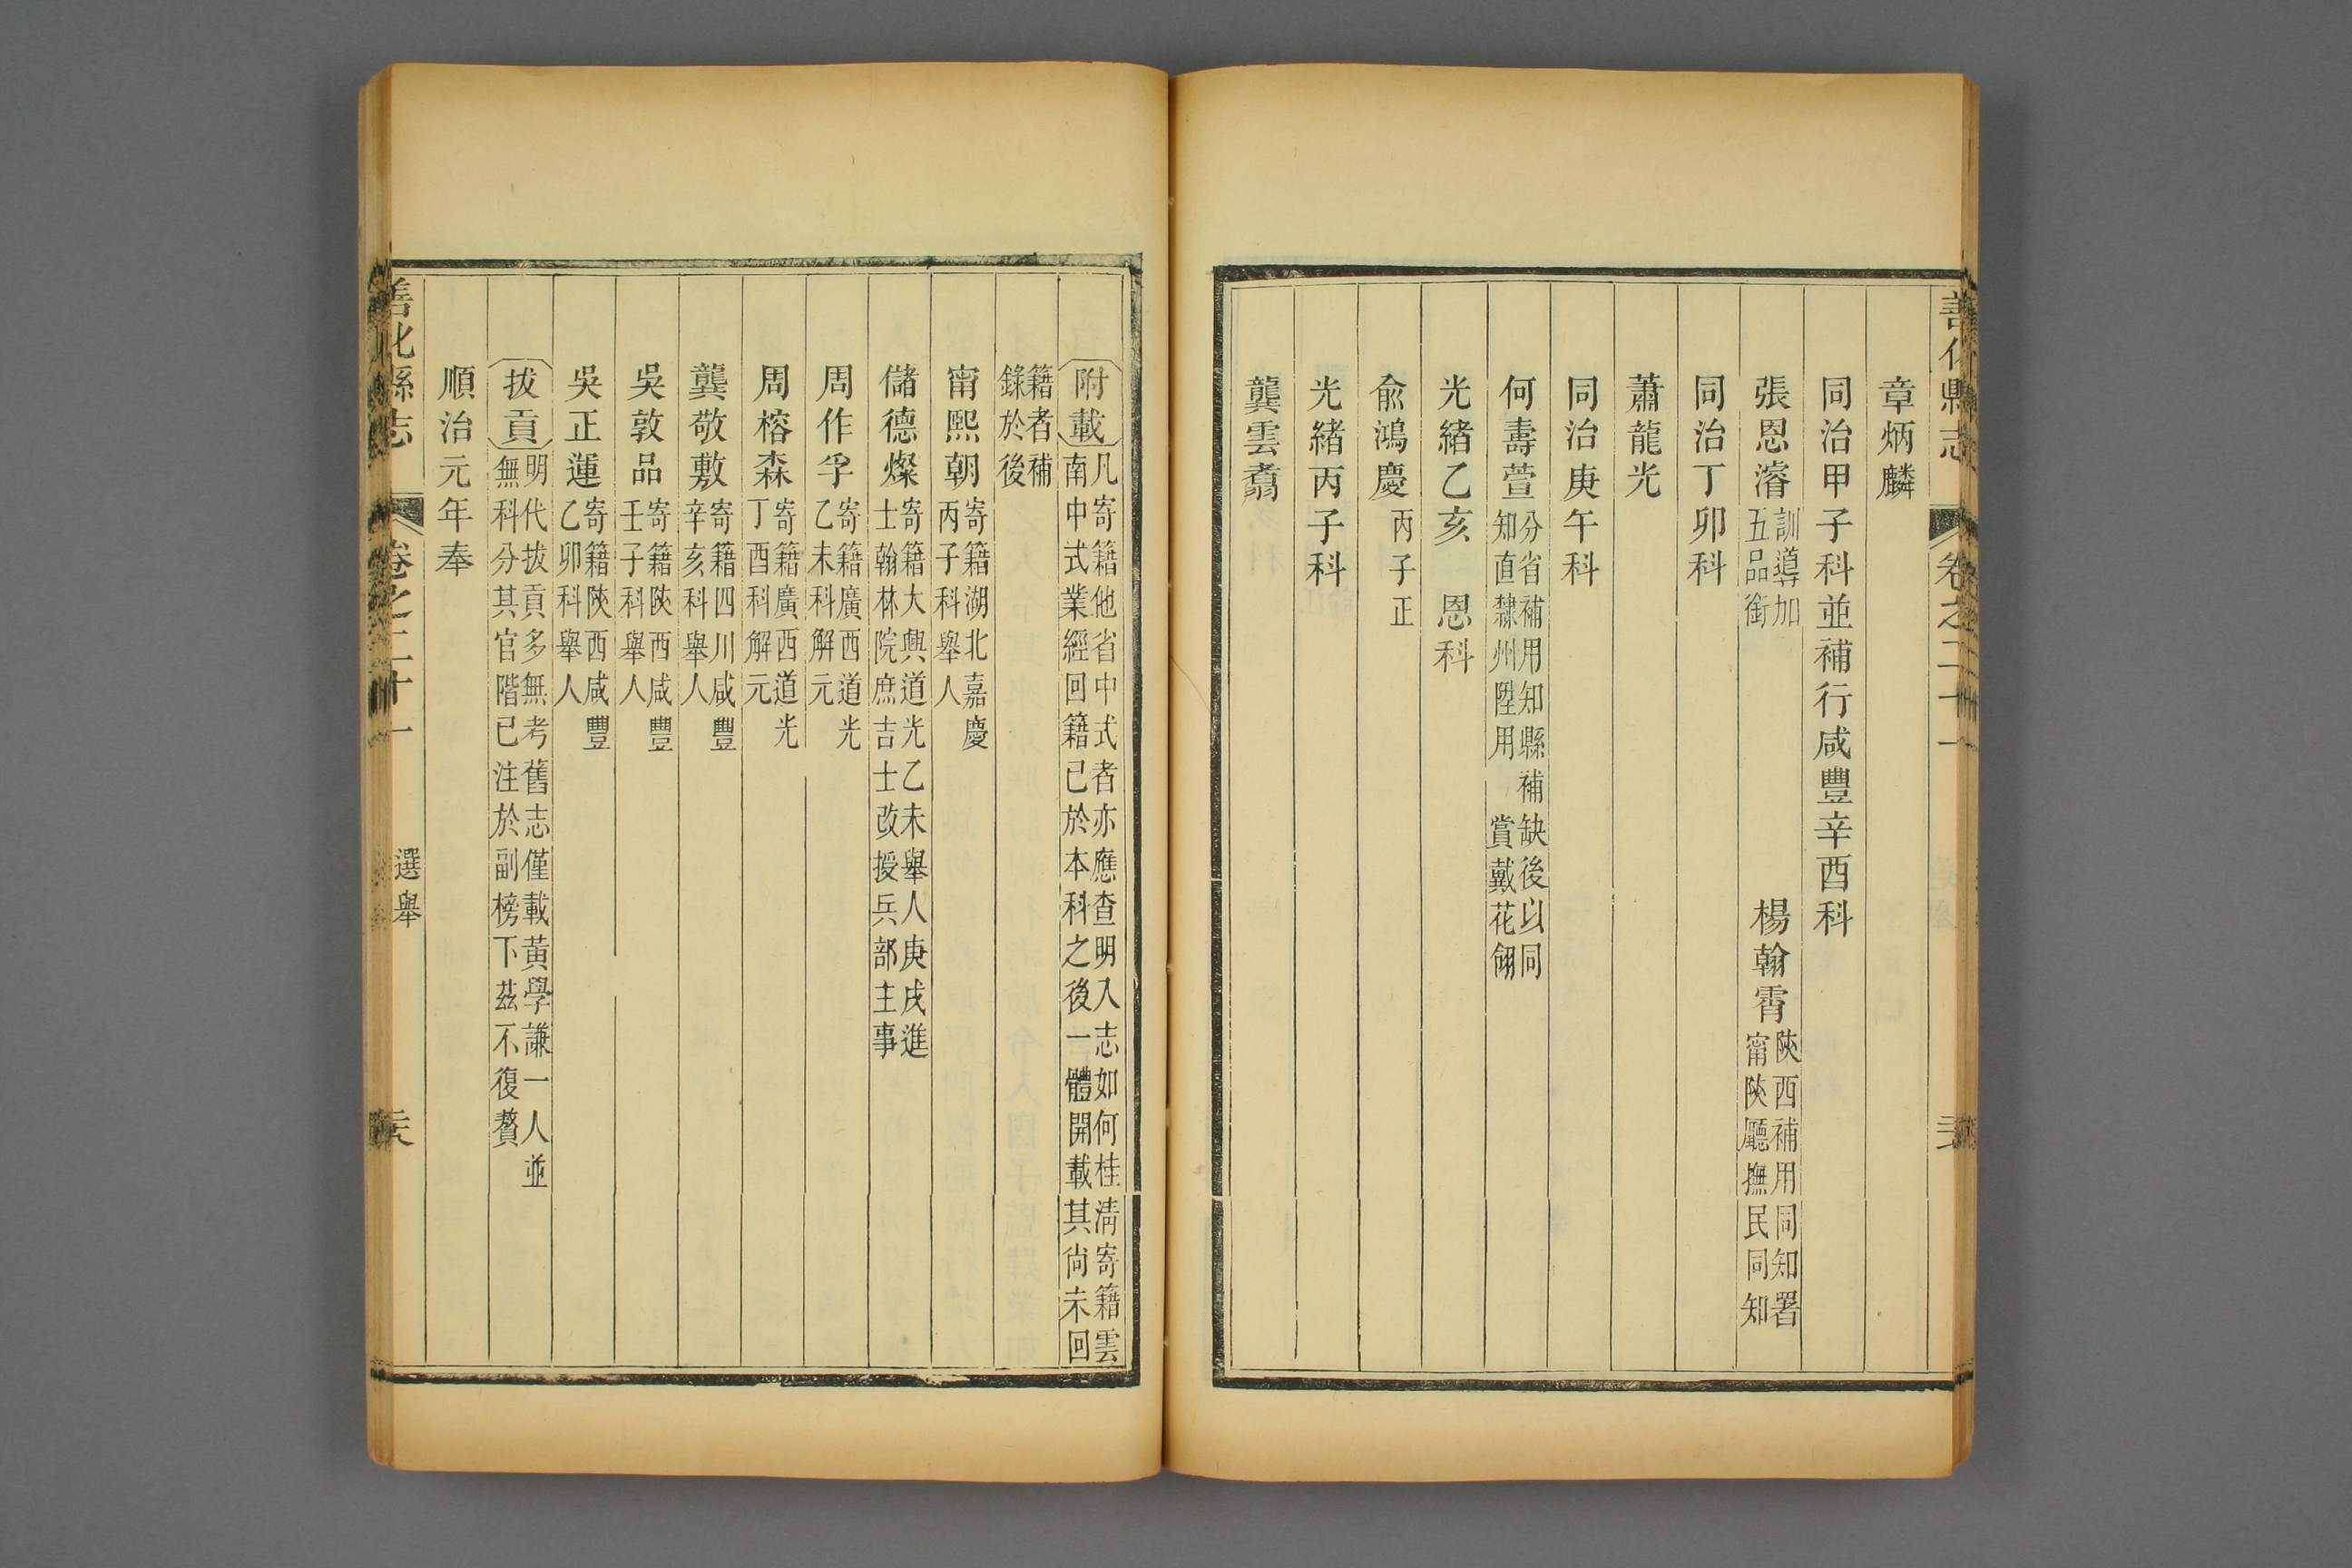 善化縣志 卷之二十一
章炳麟
同治甲子科並補行咸豐辛酉科
張恩濬 訓導加五品銜 楊翰霄 陝西補用同知署甯陝廳撫民同知
同治丁卯科
蕭龍光
同治庚午科
何壽萱 分省補用知縣補缺後以同知直隸州陞用 賞戴花翎
光緒乙亥 恩科
俞鴻慶 丙子正
光緒丙子科
龔雲翥
附載 凡寄籍他省中式者亦應查明入志如何桂清寄籍雲南中式業經回籍已於本科之後一體開載其尚未回
籍者補錄於後
甯熙朝 寄籍湖北嘉慶丙子科舉人
儲德燦 寄籍大興道光乙未舉人庚戌進士翰林院庶吉士改授兵部主事
周作孚 寄籍廣西道光乙未科解元
周榕森 寄籍廣西道光丁酉科解元
龔敬敷 寄籍四川咸豐辛亥科舉人
吳敦品 寄籍陝西咸豐壬子科舉人
吳正運 寄籍陝西咸豐乙卯科舉人
拔貢 明代拔貢多無考舊志僅載黃學謙一人並無科分其官階已注於副榜下茲不復贅
順治元年奉
善化縣志 卷之二十一 選舉